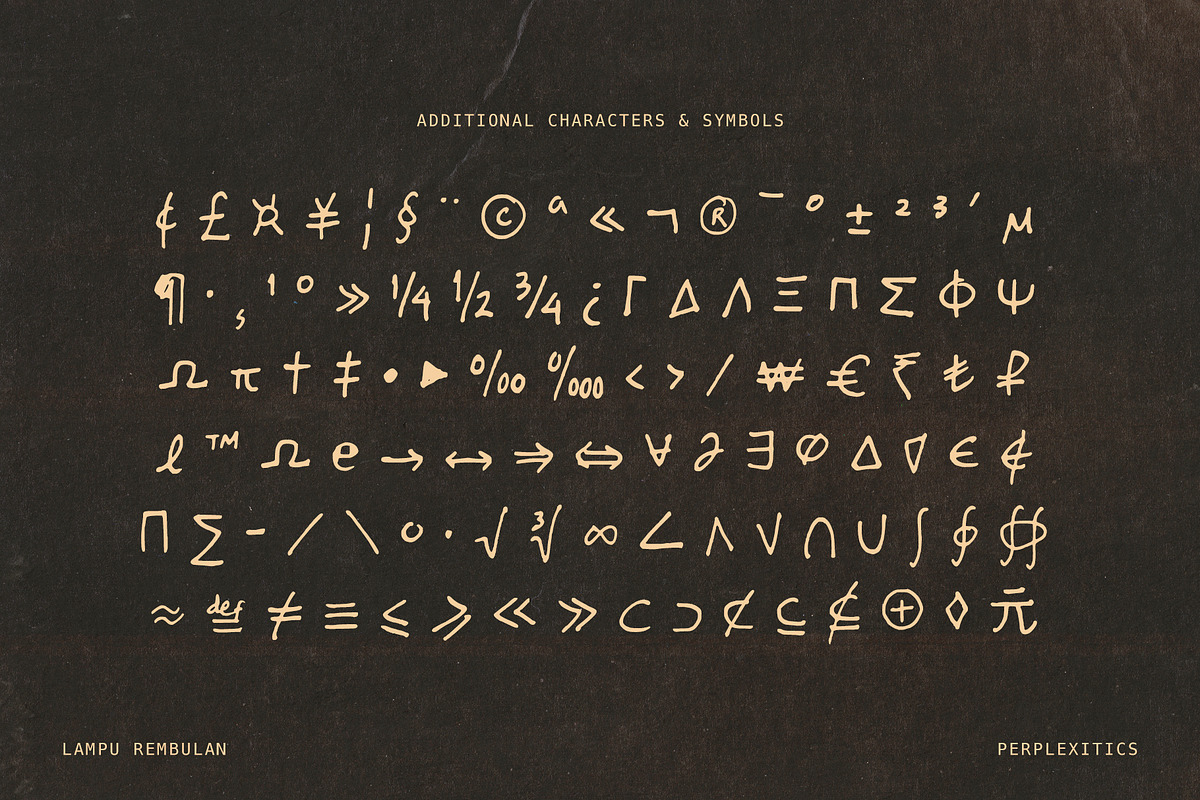 ADDITIONAL CHARACTERS & SYMBOLS
¢ £ ¤ ¥ ¦ § ¨ © ª « ¬ ® ¯ ° ± ² ³ ´ µ
¶ · ¸ ¹ º » ¼ ½ ¾ ¿ Γ Δ Λ Ξ Π Σ Φ Ψ
Ω π † ‡ • ‣ ‰ ‱ ‹ › ⁄ ₩ € ₹ ₺ ₽
ℓ ™ Ω ℮ → ↔ ⇒ ⇔ ∀ ∂ ∃ ∅ ∆ ∇ ∈ ∉
∏ ∑ − ∕ ∖ ∘ ∙ √ ∛ ∞ ∠ ∧ ∨ ∩ ∪ ∫ ∮ ∯
≈ ≝ ≠ ≡ ≤ ≥ ≪ ≫ ⊂ ⊃ ⊄ ⊆ ⊈ ⊕ ◊ 元
LAMPU REMBULAN
PERPLEXITICS